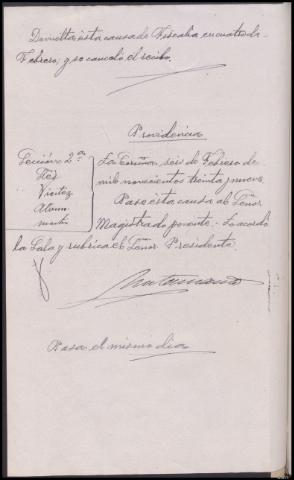 Devuelta esta causa de Fiscalia en cuatro de
Febrero; y se canceló el recibo.
Providencia
Sección 2ª
La Coruña seis de Febrero de
mil novecientos treinta y nueve.
Pase esta causa al Señor
Magistrado ponente.- Lo acordó
la Sala y rubrica el Señor Presidente.
Pasa el mismo dia